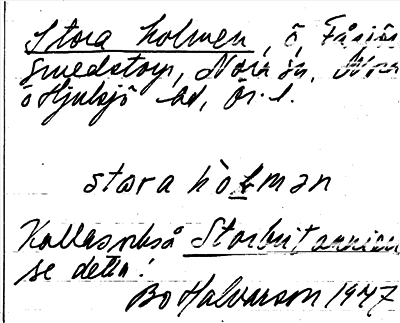 Stora holmen, ö, Fåsjön
Smedstorp, Norr
ö Hjulsjö sn, Ör. l.
stora hòlmən
Kallas också Storbritannien
se detta!
Bo Halvarson 1947